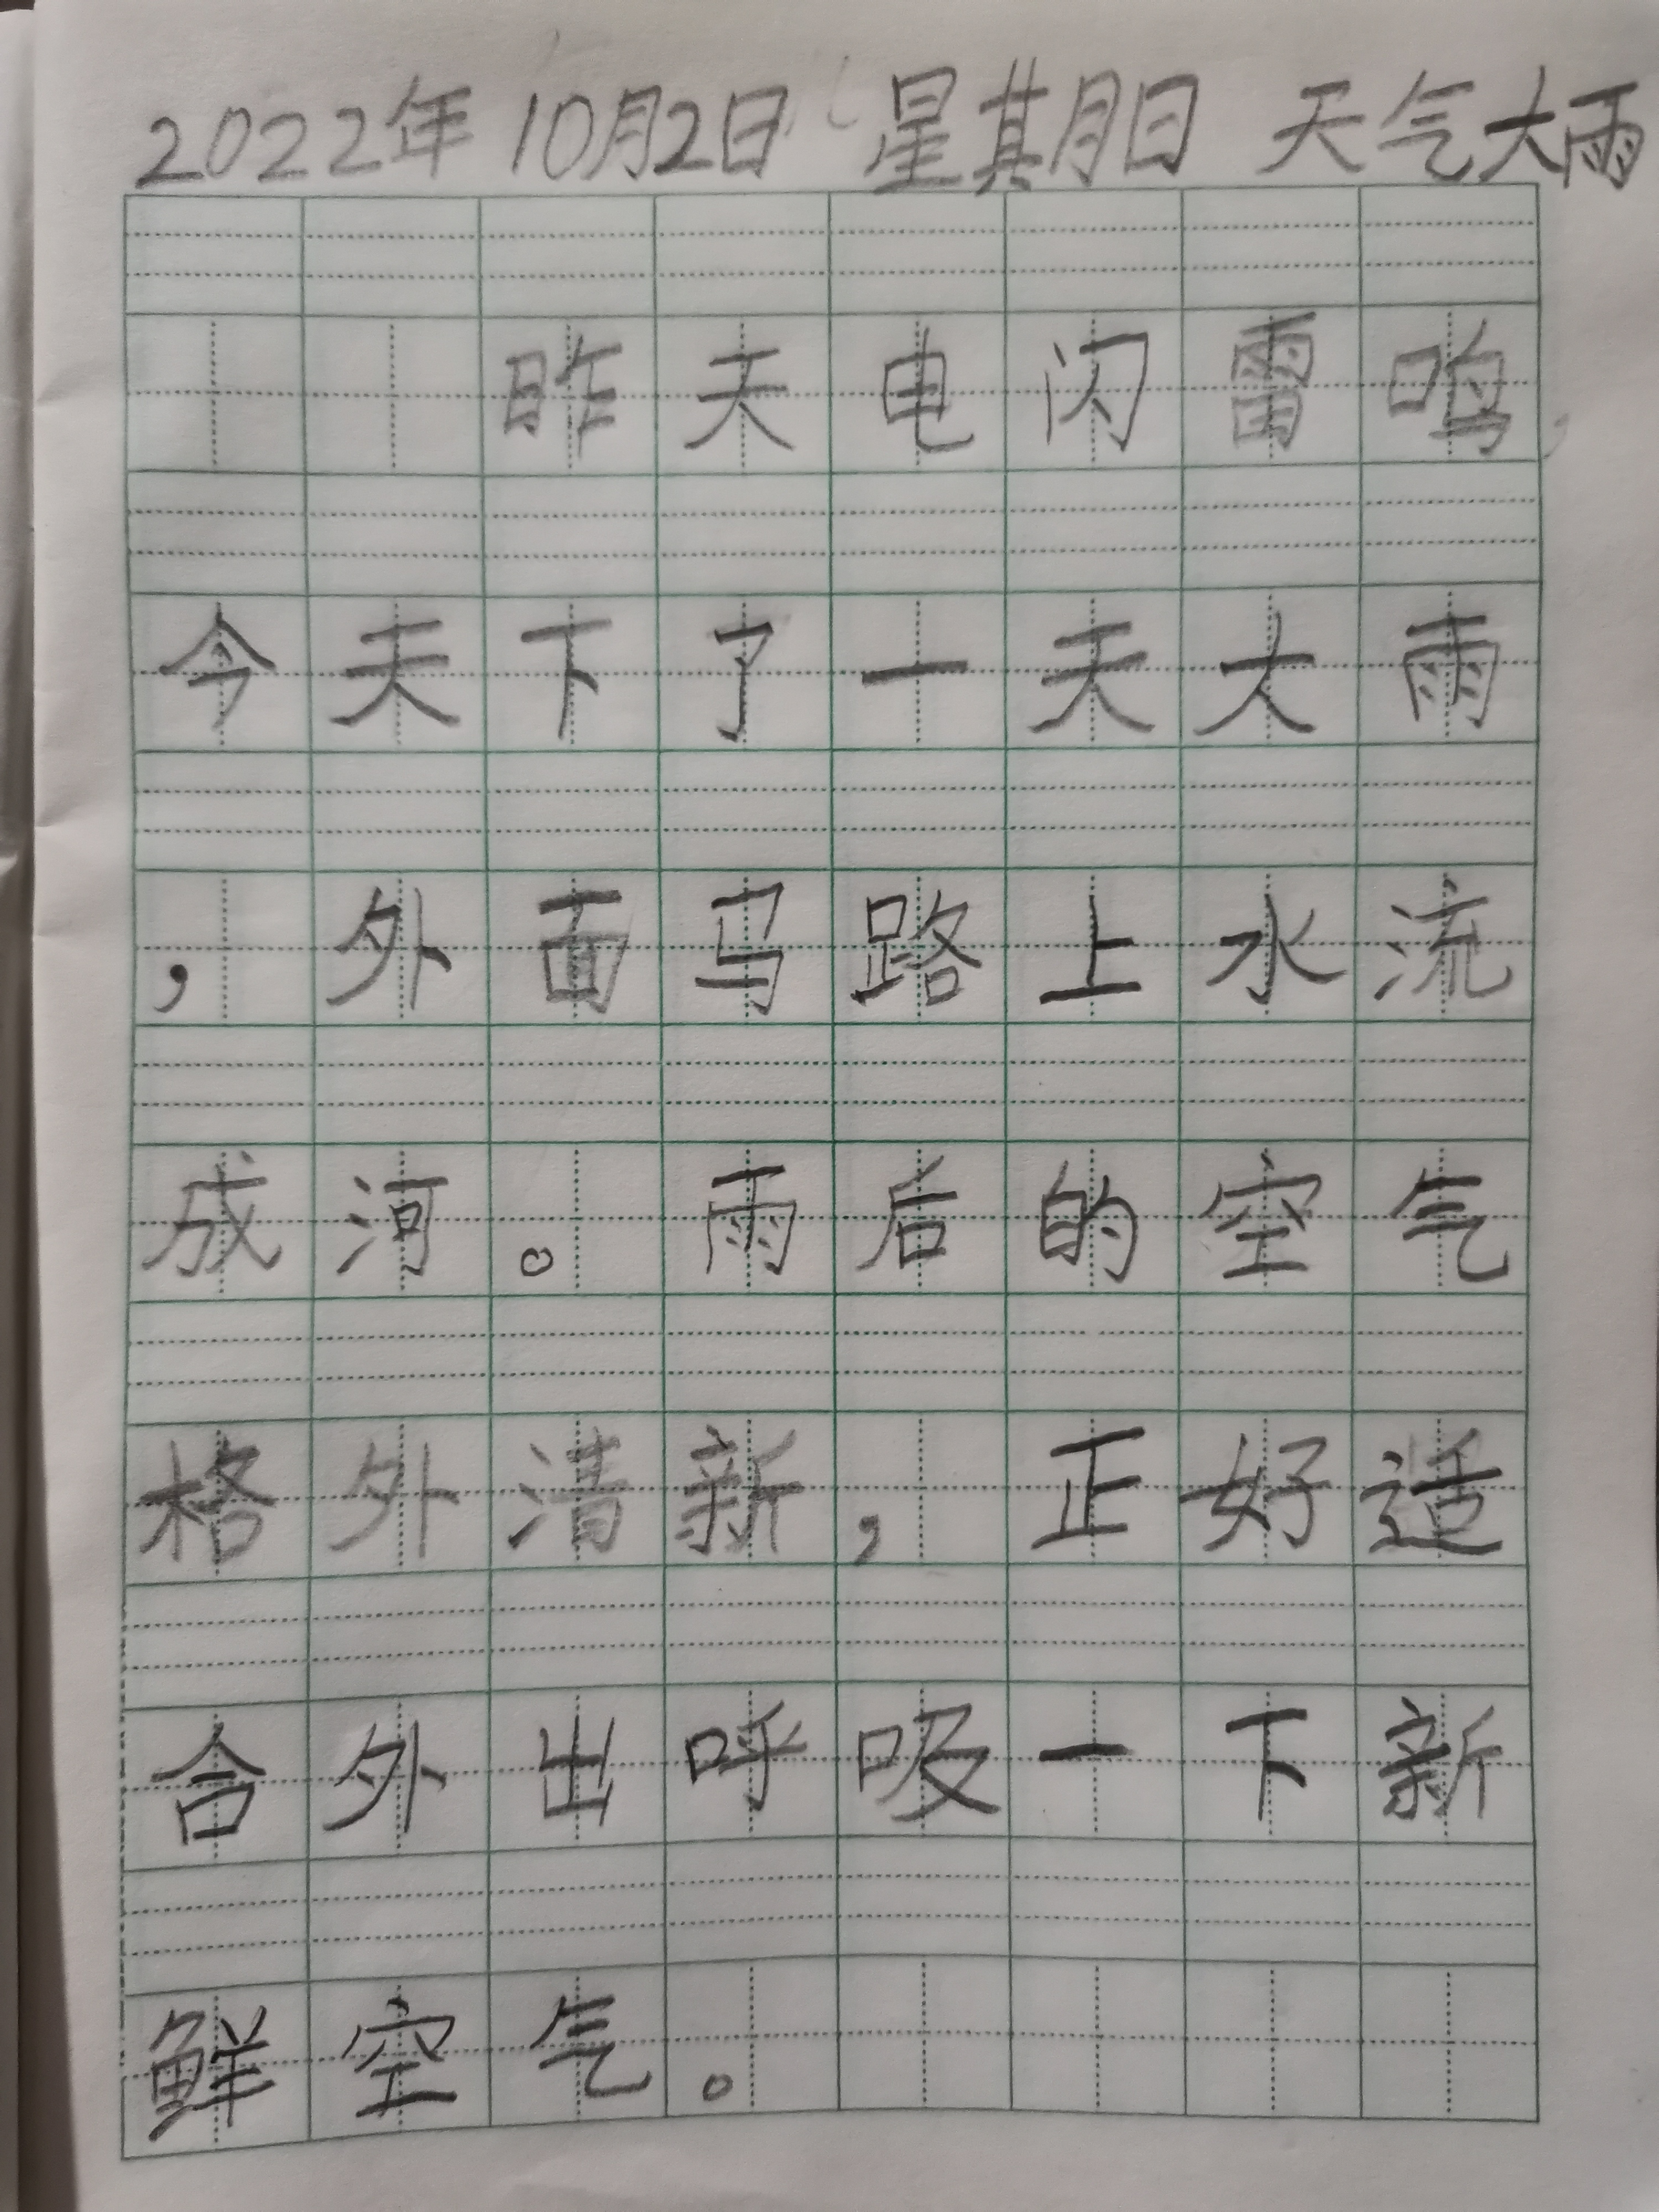 2022年10月2日 星期日 天气大雨
昨天电闪雷鸣,
今天下了一天大雨
,外面马路上水流
成河。雨后的空气
格外清新,正好适
合外出呼吸一下新
鲜空气。